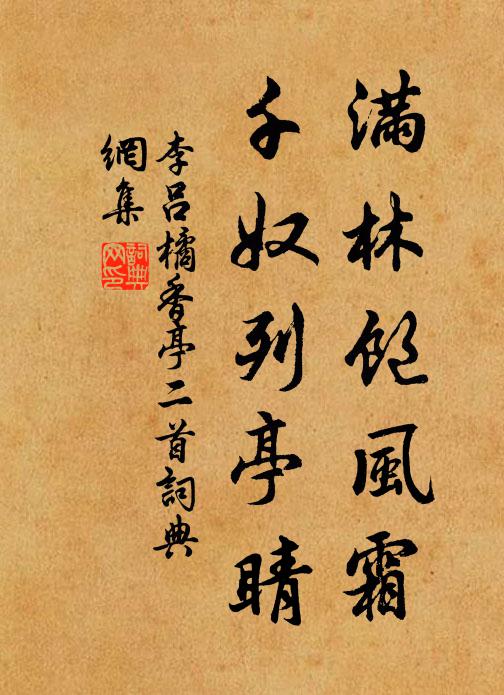 滿林飽風霜
千奴列亭睛
李呂橘香亭二首詞典
網集
詞典
网印